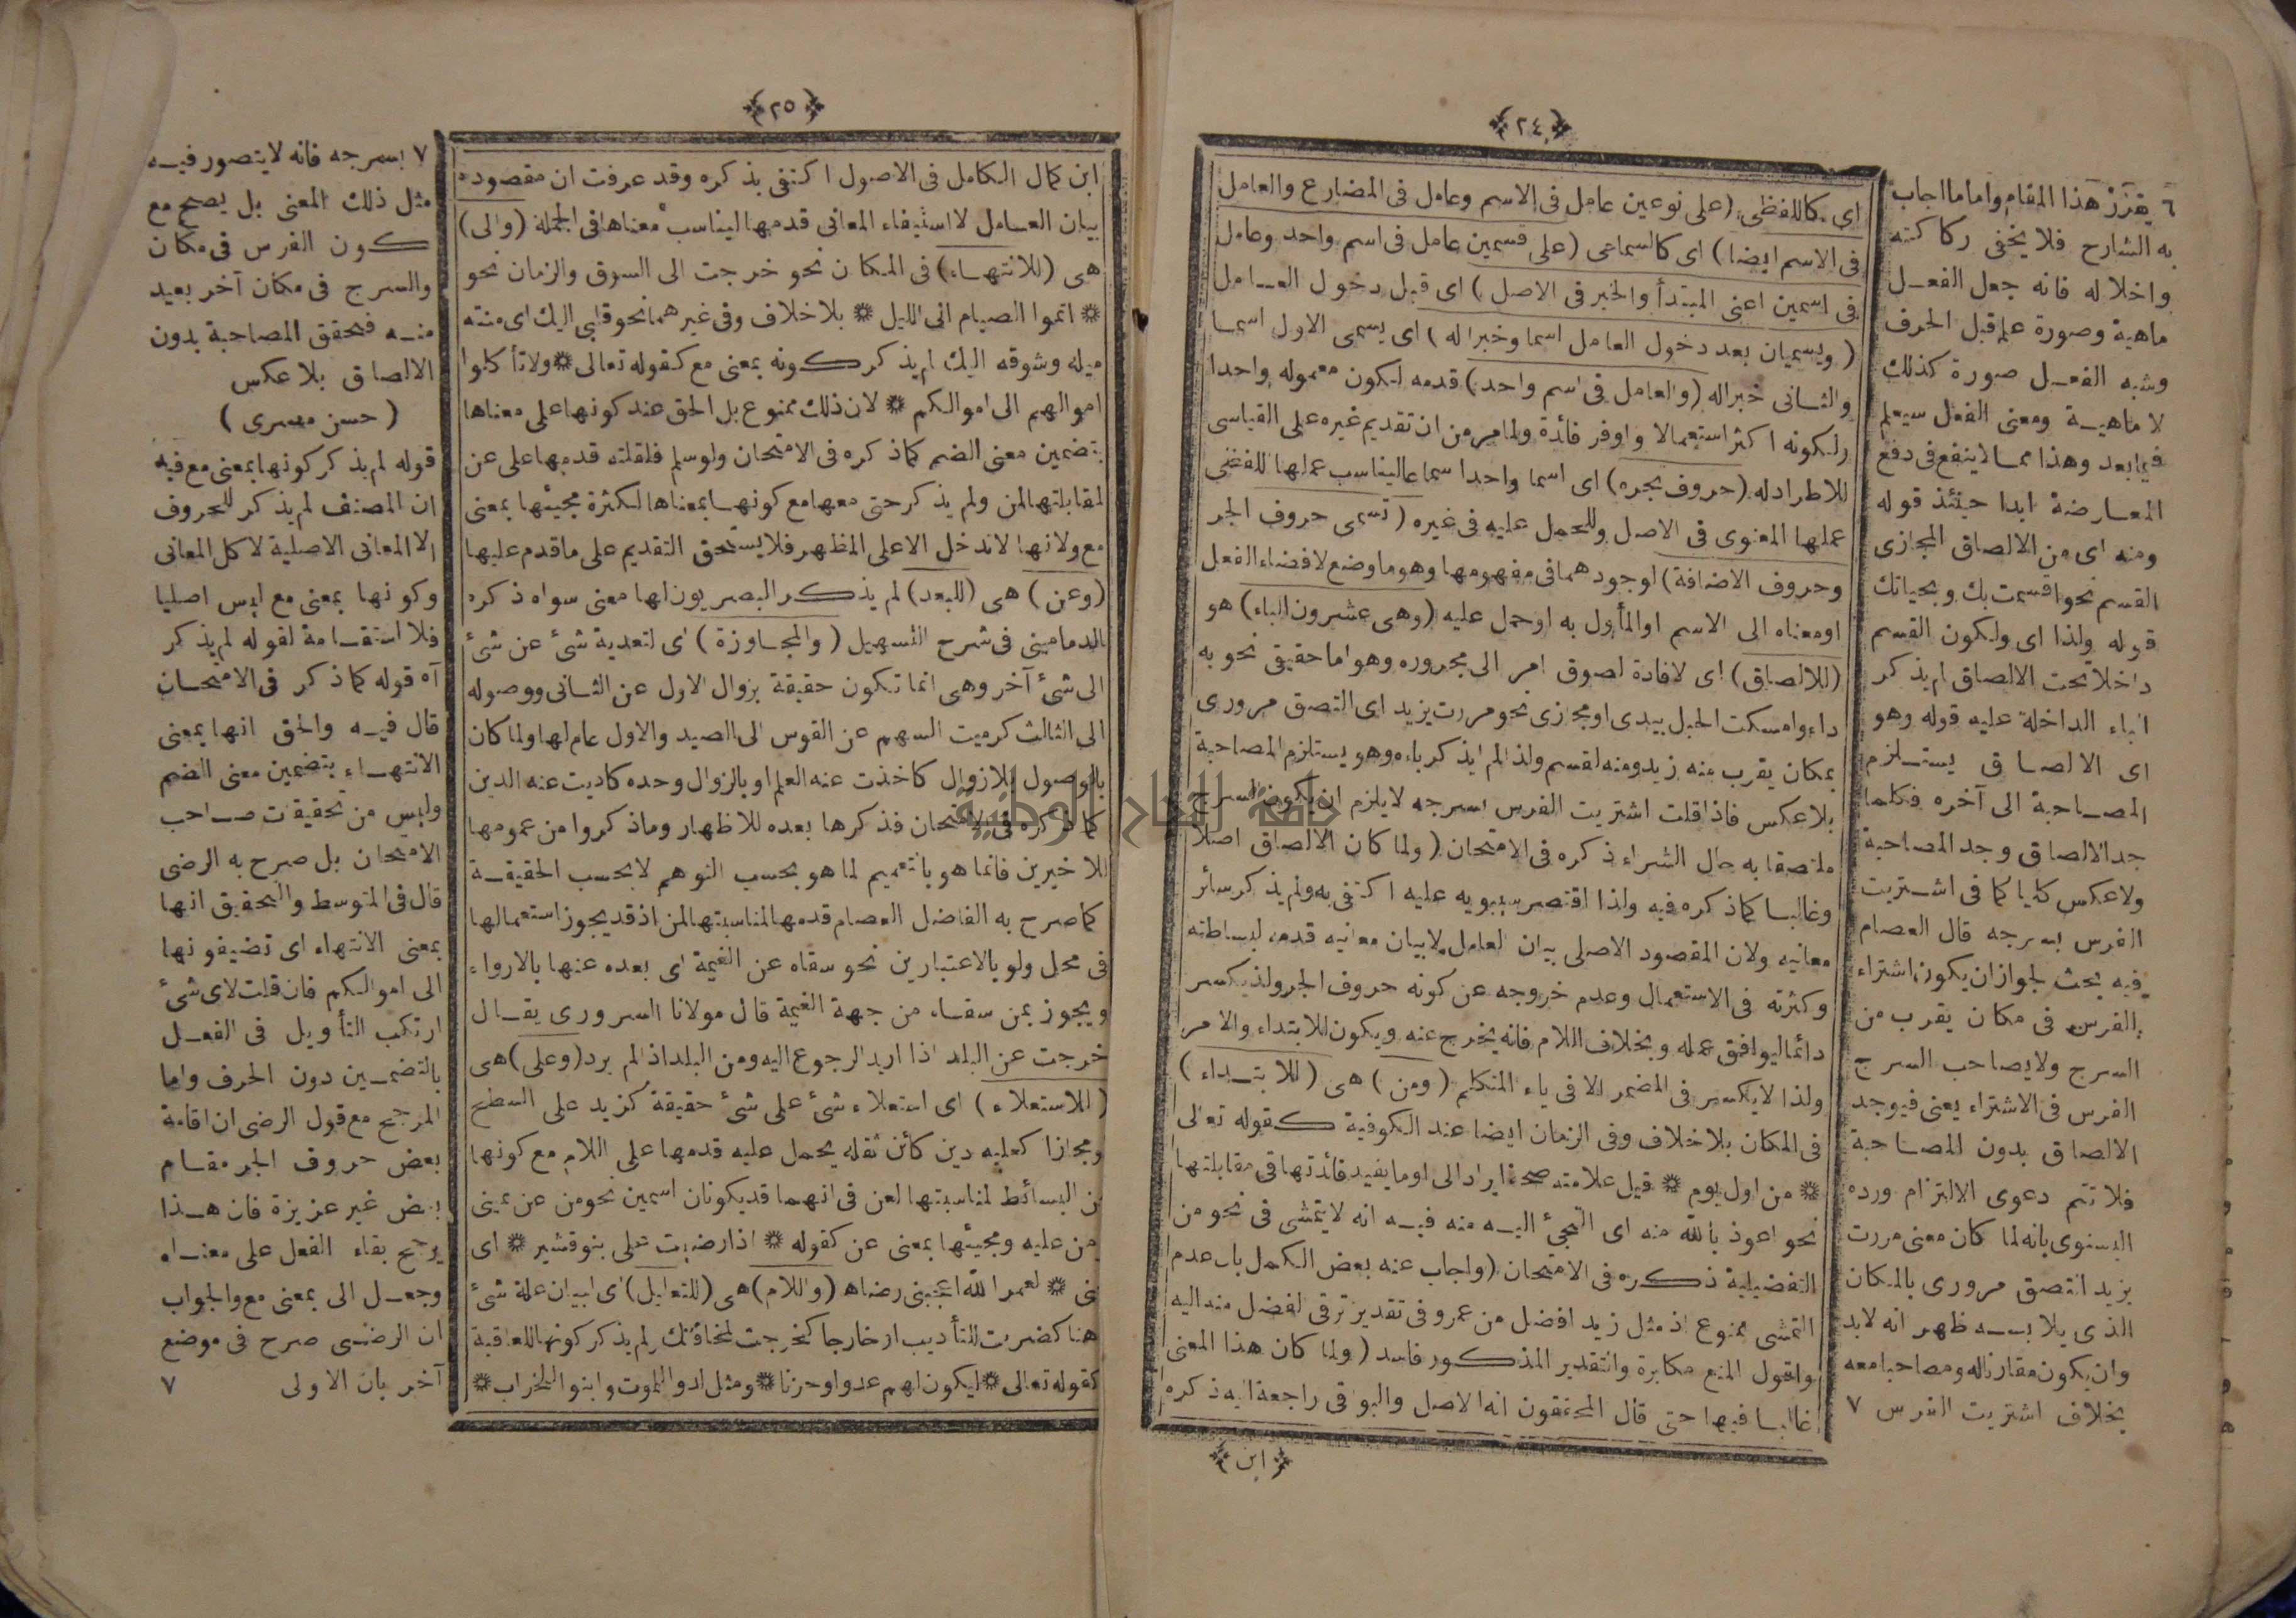 ﴿٢٤﴾
اى كاللفظى (على نوعين عامل فى الاسم وعامل فى المضارع والعامل
فى الاسم ايضا) اى كالسماعى (على قسمين عامل فى اسم واحد وعامل
فى اسمين اعنى المبتدأ والخبر فى الاصل) اى قبل دخول العامل
(ويسميان بعد دخول العامل اسما وخبرا له) اى يسمى الاول اسما
والثانى خبرا له (والعامل فى اسم واحد) قدمه لكون معموله واحدا
ولكونه اكثر استعمالا واوفر فائدة ولما مر من ان تقديم غيره على القياسى
للاطراد له (حروف تجره) اى اسما واحدا سماعا ليناسب عملها اللفظى
عملها المعنوى فى الاصل وللحمل عليه فى غيره (تسمى حروف الجر
وحروف الاضافة) لوجودهما فى مفهومها وهو ما وضع لافضاء الفعل
او معناه الى الاسم او المأول به او حمل عليه (وهى عشرون الباء) هو
(للالصاق) اى لافادة لصوق امر الى مجروره وهو اما حقيقى نحو به
داء وامسكت الحبل بيدى او مجازى نحو مررت بزيد اى التصق مرورى
بمكان يقرب منه زيد ومنه القسم ولذا لم يذكر باءه وهو يستلزم المصاحبة
بلا عكس فاذا قلت اشتريت الفرس بسرجه لا يلزم ان يكون السرج
ملتصقا به حال الشراء ذكره فى الامتحان (ولما كان الالصاق اصلا
وغالبا كما ذكره فيه ولذا اقتصر سيبويه عليه اكتفى به ولم يذكر سائر
معانيه ولان المقصود الاصلى بيان العامل لا بيان معانيه قدمه لبساطته
وكثرته فى الاستعمال وعدم خروجه عن كونه حروف الجر ولذ يكسر
دائما ليوافق عمله وبخلاف اللام فانه يخرج عنه ويكون للابتداء والامر
ولذا لا يكسر فى المضمر الا فى ياء المتكلم (ومن) هى (للابتداء)
فى المكان بلا خلاف وفى الزمان ايضا عند الكوفية كقوله تعالى
* من اول يوم * قيل علامته صحة ايراد الى او ما يفيد فائدتها فى مقابلتها
نحو اعوذ بالله منه اى التجئ اليه منه فيه انه لا يتمشى فى نحو من
التفضيلية ذكره فى الامتحان (واجاب عنه بعض الكمل بان عدم
التمشى ممنوع اذ مثل زيد افضل من عمرو فى تقدير ترقى لفضل منه اليه
واقول المنع مكابرة والتقدير المذكور فاسد (ولما كان هذا المعنى
غالبا فيها حتى قال المحققون انه الاصل والبواقى راجعة اليه ذكره
﴿ابن﴾
٦ يقرر هذا المقام واما ما اجاب
به الشارح فلا يخفى ركاكته
واخلاله فانه جعل الفعل
ماهية وصورة علم قبل الحرف
وشبه الفعل صورة كذلك
لا ماهية ومعنى الفعل سيعلم
فيما بعد وهذا مما لا ينفع فى دفع
المعارضة ابدا حينئذ قوله
ومنه اى من الالصاق المجازى
القسم نحو اقسمت بك وبحياتك
قوله ولذا اى ولكون القسم
داخلا تحت الالصاق لم يذكر
الباء الداخلة عليه قوله وهو
اى الالصاق يستلزم
المصاحبة الى آخره فكلما
وجد الالصاق وجد المصاحبة
ولا عكس كليا كما فى اشتريت
الفرس بسرجه قال العصام
فيه بحث لجواز ان يكون اشتراء
الفرس فى مكان يقرب من
السرج ولا يصاحب السرج
الفرس فى الاشتراء يعنى فيوجد
الالصاق بدون المصاحبة
فلا تتم دعوى الالتزام ورده
البسنوى بانه لما كان معنى مررت
بزيد التصق مرورى بالمكان
الذى يلابسه ظهر انه لابد
وان يكون مقارنا له ومصاحبا معه
بخلاف اشتريت الفرس ٧
﴿٢٥﴾
ابن كمال الكامل فى الاصول اكتفى بذكره وقد عرفت ان مقصوده
بيان العامل لا استيفاء المعانى قدمها ليناسب معناها فى الجملة (والى)
هى (للانتهاء) فى المكان نحو خرجت الى السوق والزمان نحو
* اتموا الصيام الى الليل * بلا خلاف وفى غيرهما نحو قلبى اليك اى منته
ميله وشوقه اليك لم يذكر كونه بمعنى مع كقوله تعالى * ولا تأكلوا
اموالهم الى اموالكم * لان ذلك ممنوع بل الحق عند كونها على معناها
بتضمين معنى الضم كما ذكره فى الامتحان ولو سلم فلقلته قدمها على عن
لمقابلتها لمن ولم يذكر حتى معها مع كونها بمعناها لكثرة مجيئها بمعنى
مع ولانها لا تدخل الا على المظهر فلا يستحق التقديم على ما قدم عليها
(وعن) هى (للبعد) لم يذكر البصريون لها معنى سواه ذكره
الدمامينى فى شرح التسهيل (والمجاوزة) اى لتعدية شئ عن شئ
الى شئ آخر وهى انما تكون حقيقة بزوال الاول عن الثانى ووصوله
الى الثالث كرميت السهم عن القوس الى الصيد والاول عام لها ولما كان
بالوصول بلا زوال كاخذت عنه العلم او بالزوال وحده كاديت عنه الدين
كما ذكره فى الامتحان فذكرها بعده للاظهار وما ذكروا من عمومها
للاخيرين فانما هو بالتعميم لما هو بحسب التوهم لا بحسب الحقيقة
كما صرح به الفاضل العصام قدمها لمناسبتها لمن اذ قد يجوز استعمالها
فى محل ولو بالاعتبارين نحو سقاه عن الغيمة اى بعده عنها بالارواء
ويجوز بمن سقاه من جهة الغيمة قال مولانا السرورى يقال
خرجت عن البلد اذا اريد الرجوع اليه ومن البلد اذا لم يرد (وعلى) هى
(للاستعلاء) اى استعلاء شئ على شئ حقيقة كزيد على السطح
ومجازا كعليه دين كأن ثقله يحمل عليه قدمها على اللام مع كونها
من البسائط لمناسبتها لعن فى انهما قد يكونان اسمين نحو من عن يمينى
من عليه ومجيئها بمعنى عن كقوله * اذا رضيت على بنو قشير * اى
عنى * لعمر الله اعجبنى رضاها (واللام) هى (للتعليل) اى لبيان علة شئ
ذهنا كضربت للتأديب او خارجا كخرجت لمخافتك ولم يذكر كونها للعاقبة
كقوله تعالى * ليكون لهم عدوا وحزنا * ومثل لدوا للموت وابنوا للخراب *
٧ بسرجه فانه لا يتصور فيه
مثل ذلك المعنى بل يصح مع
كون الفرس فى مكان
والسرج فى مكان آخر بعيد
منه فتحقق المصاحبة بدون
الالصاق بلا عكس
(حسن مصرى)
قوله لم يذكر كونها بمعنى مع فيه
ان المصنف لم يذكر للحروف
الا المعانى الاصلية لا كل المعانى
وكونها بمعنى مع ليس اصليا
فلا استقامة لقوله لم يذكر
آه قوله كما ذكر فى الامتحان
قال فيه والحق انها بمعنى
الانتهاء بتضمين معنى الضم
وليس من تحقيقات صاحب
الامتحان بل صرح به الرضى
قال فى المتوسط والتحقيق انها
بمعنى الانتهاء اى تضيفونها
الى اموالكم فان قلت لاى شئ
ارتكب التأويل فى الفعل
بالتضمين دون الحرف واما
المرجح مع قول الرضى ان اقامة
بعض حروف الجر مقام
بعض غير عزيزة فان هذا
يرجح بقاء الفعل على معناه
وجعل الى بمعنى مع والجواب
ان الرضى صرح فى موضع
آخر بان الاولى ٧